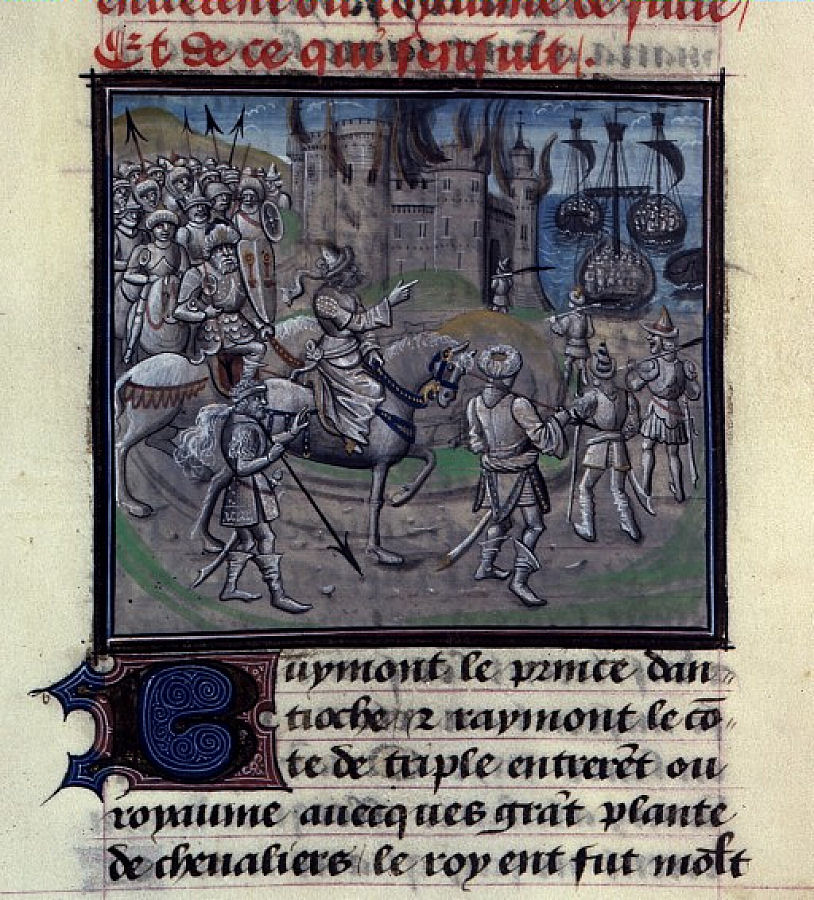 entrerent ou royaume de surie /
Et de ce qui sensuit / .
Buymont le prince dan〃
tioche ⁊ raymont le cō〃
te de triple entrerēt ou
royaume auecques grāt plante
de cheualiers le roy ent fut molt